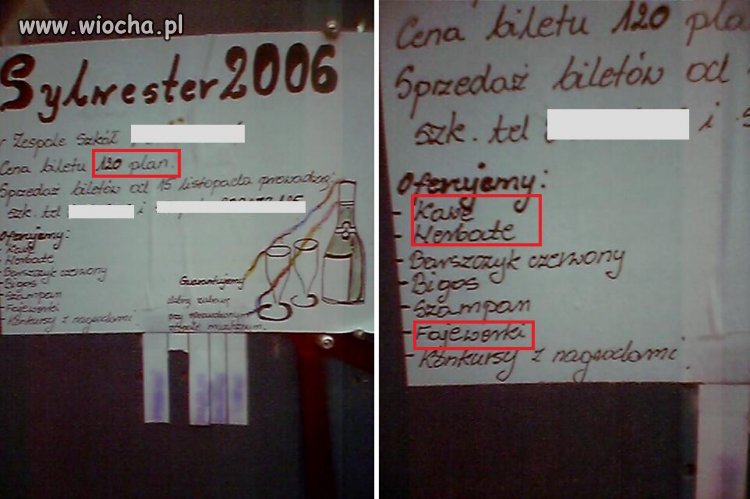 www.wiocha.pl
Sylwester 2006
Zespole Szkół
Cena biletu 120 plan.
Sprzedaż biletów od 15 listopada prowadzi:
szk. tel i
Oferujemy:
- Kawe
- Herbate
- Barszczyk czerwony
- Bigos
- Szampan
- Fajewerki
- Konkursy z nagrodami.
Gwarantujemy
dobrą zabawę
przy
Cena biletu 120 plan
Sprzedaż biletów od
szk. tel i
Oferujemy:
- Kawe
- Herbate
- Barszczyk czerwony
- Bigos
- Szampan
- Fajewerki
- Konkursy z nagrodami.